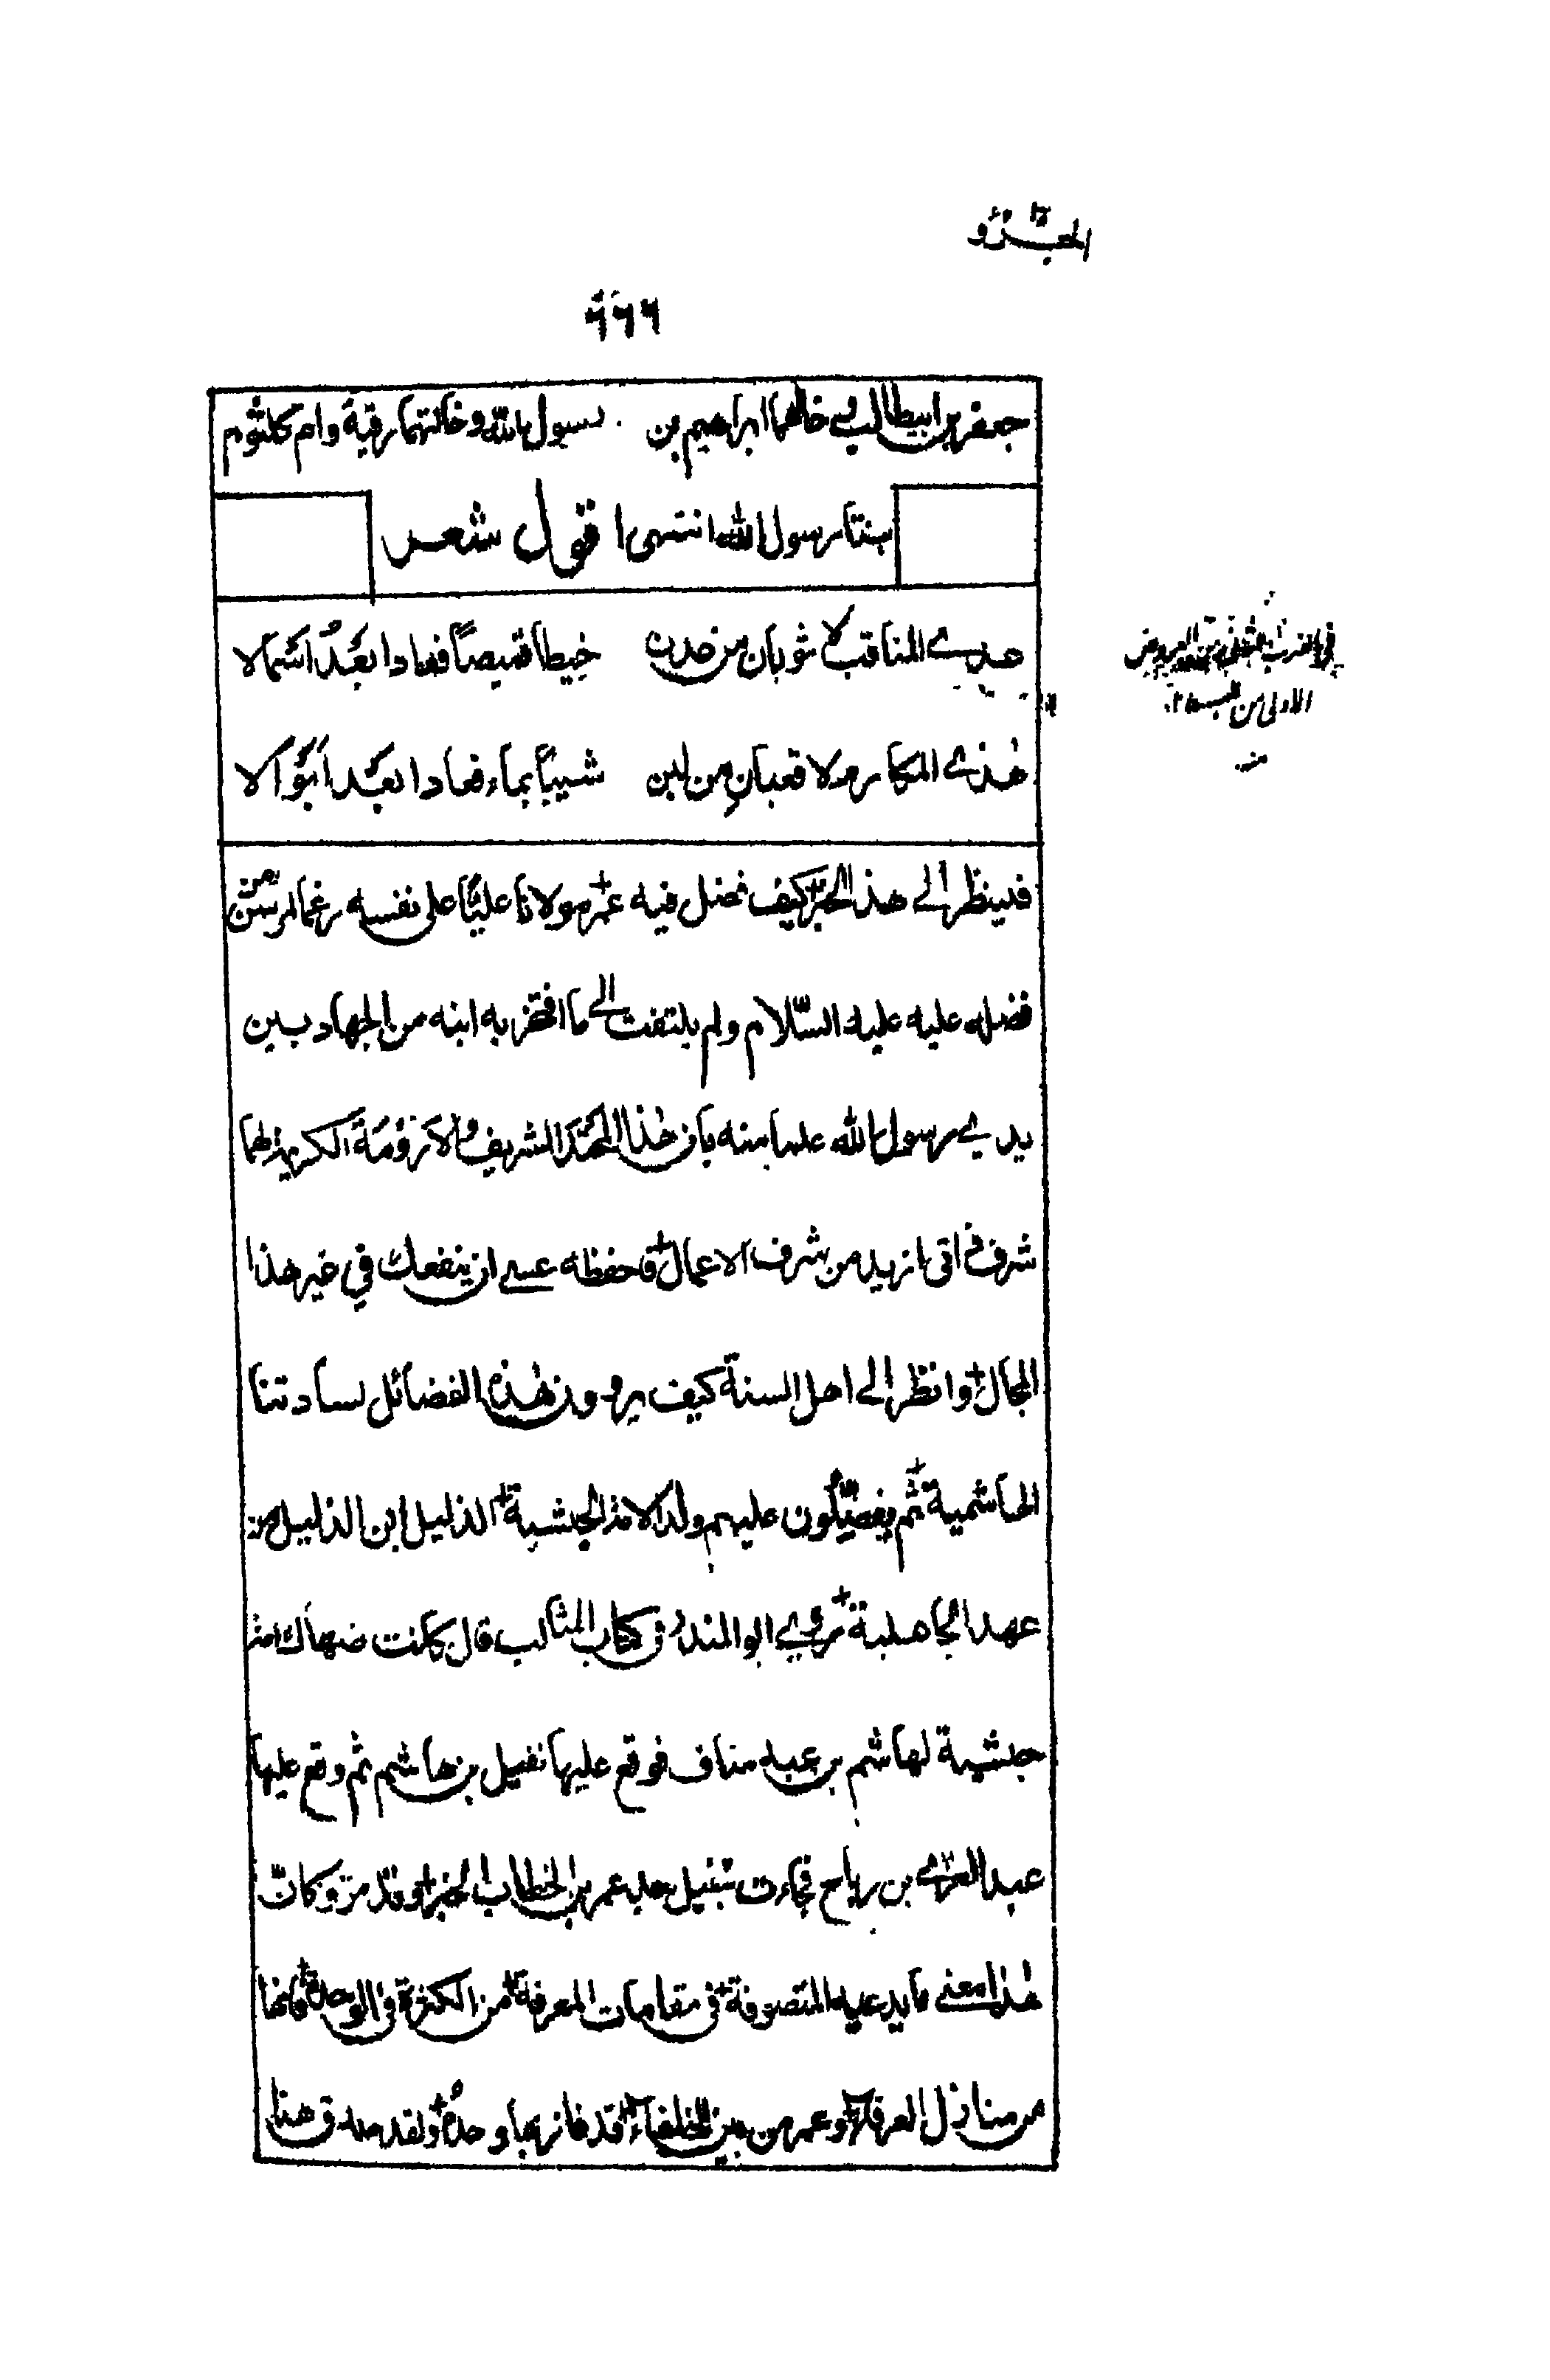 ٦٦٦
جعفر بن ابيطالب وخالهما ابراهيم بن رسول الله وخالتهما رقية وام كلثوم
بنتا رسول الله انتهى اقول شعر
هذي المناقب لا ثوبان من عدن خيطا قميصاً فعادا بعدُ اسمالا
هٰذي المكارم لا قعبانِ من لبن شيباً بماء فعادا بعد ابوالا
فلينظر الى هذا الخبر كيف فضل فيه عمر مولانا علياً على نفسه رغما لمن
فضله عليه عليه السّلام ولم يلتفت الى ما افتخر به ابنه من الجهاد بين
يدي رسول الله علما منه بان هٰذا المحتد الشريف والارُومَة الكريمة لهما
شرف ذاتى ازيد من شرف الاعمال فاحفظه عسى ان ينفعك في غير هذا
المجال وانظر الى اهل السنة كيف يروون هٰذه الفضائل لسادتنا
الهاشمية ثم يفضّلون عليهم ولد الامة الحبشية الذليل ابن الذليل من
عهد الجاهلية روى ابو المنذر فى كتاب المثالب قال كانت ضهاك امة
حبشية لهاشم بن عبد مناف فوقع عليها نفيل بن هاشم ثم وقع عليها
عبد العزى بن رياح فجاءت بنفيل جد عمر بن الخطاب الخبر وقد مرّ وكانّ
هٰذا معنى ما يدعيه المتصوفة فى مقامات المعرفة من الكثرة فى الوحدة فانها
من منازل العرفاء وعمر من بين الخلفاء قد فاز بها وحدهُ ولقد صدق هنا
الاولى من البسيط
منه